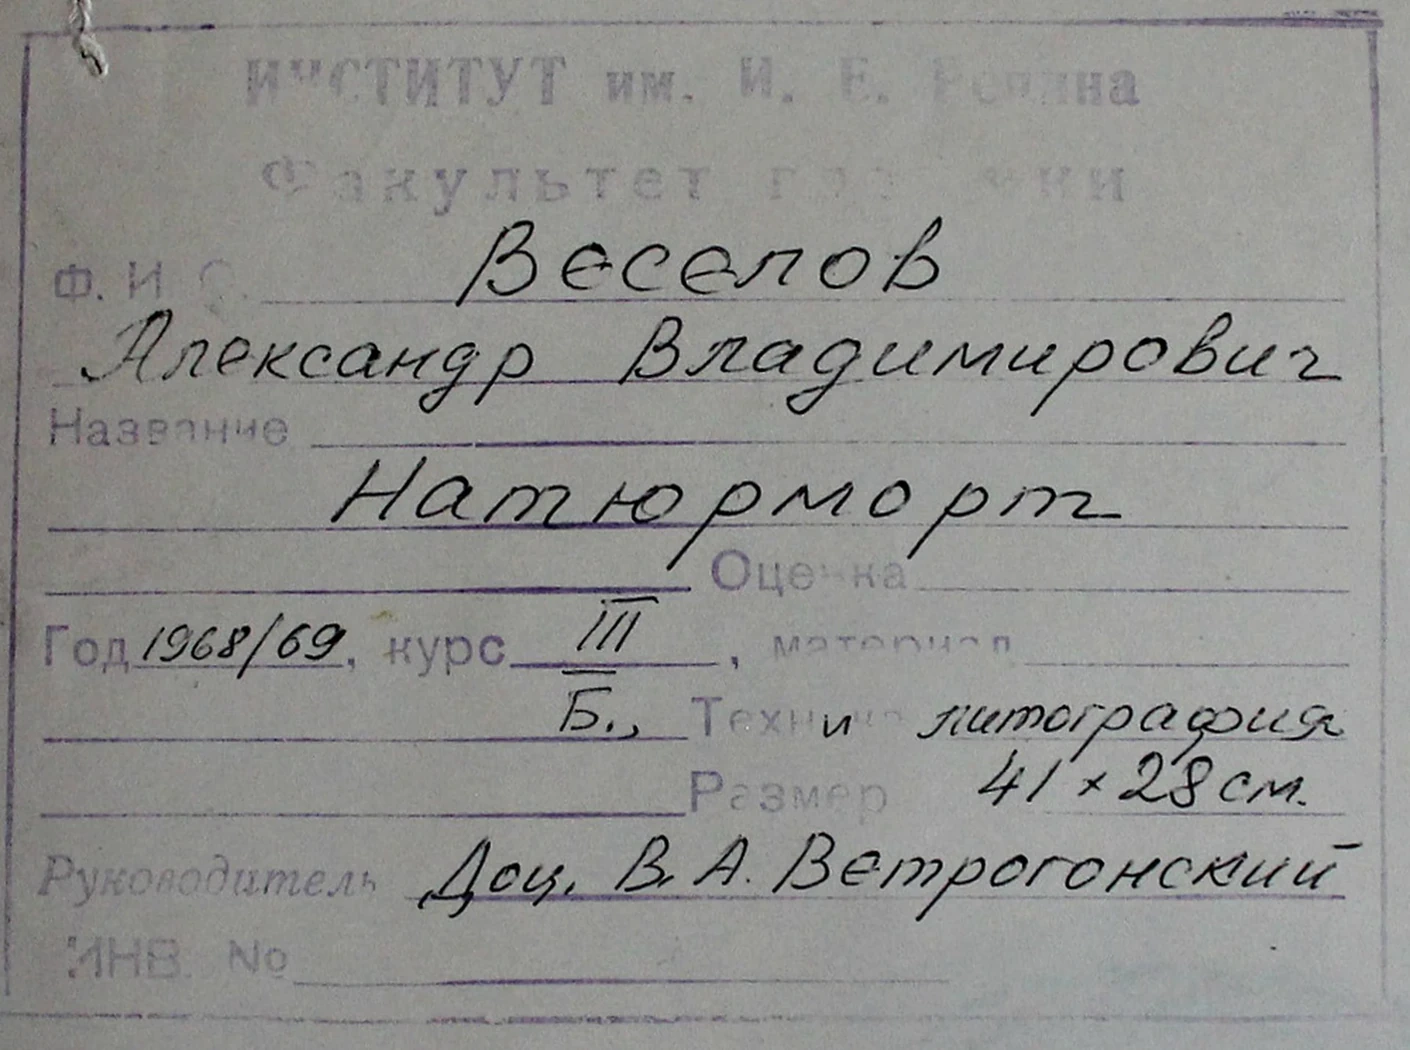 ИНСТИТУТ им. И. Е. Репина
Факультет графики
Ф. И. О. Веселов
Александр Владимирович
Название
Натюрморт
Оценка
Год 1968/69, курс III, материал
Б., Техника литография
Размер 41 × 28 см.
Руководитель Доц. В. А. Ветрогонский
ИНВ. №